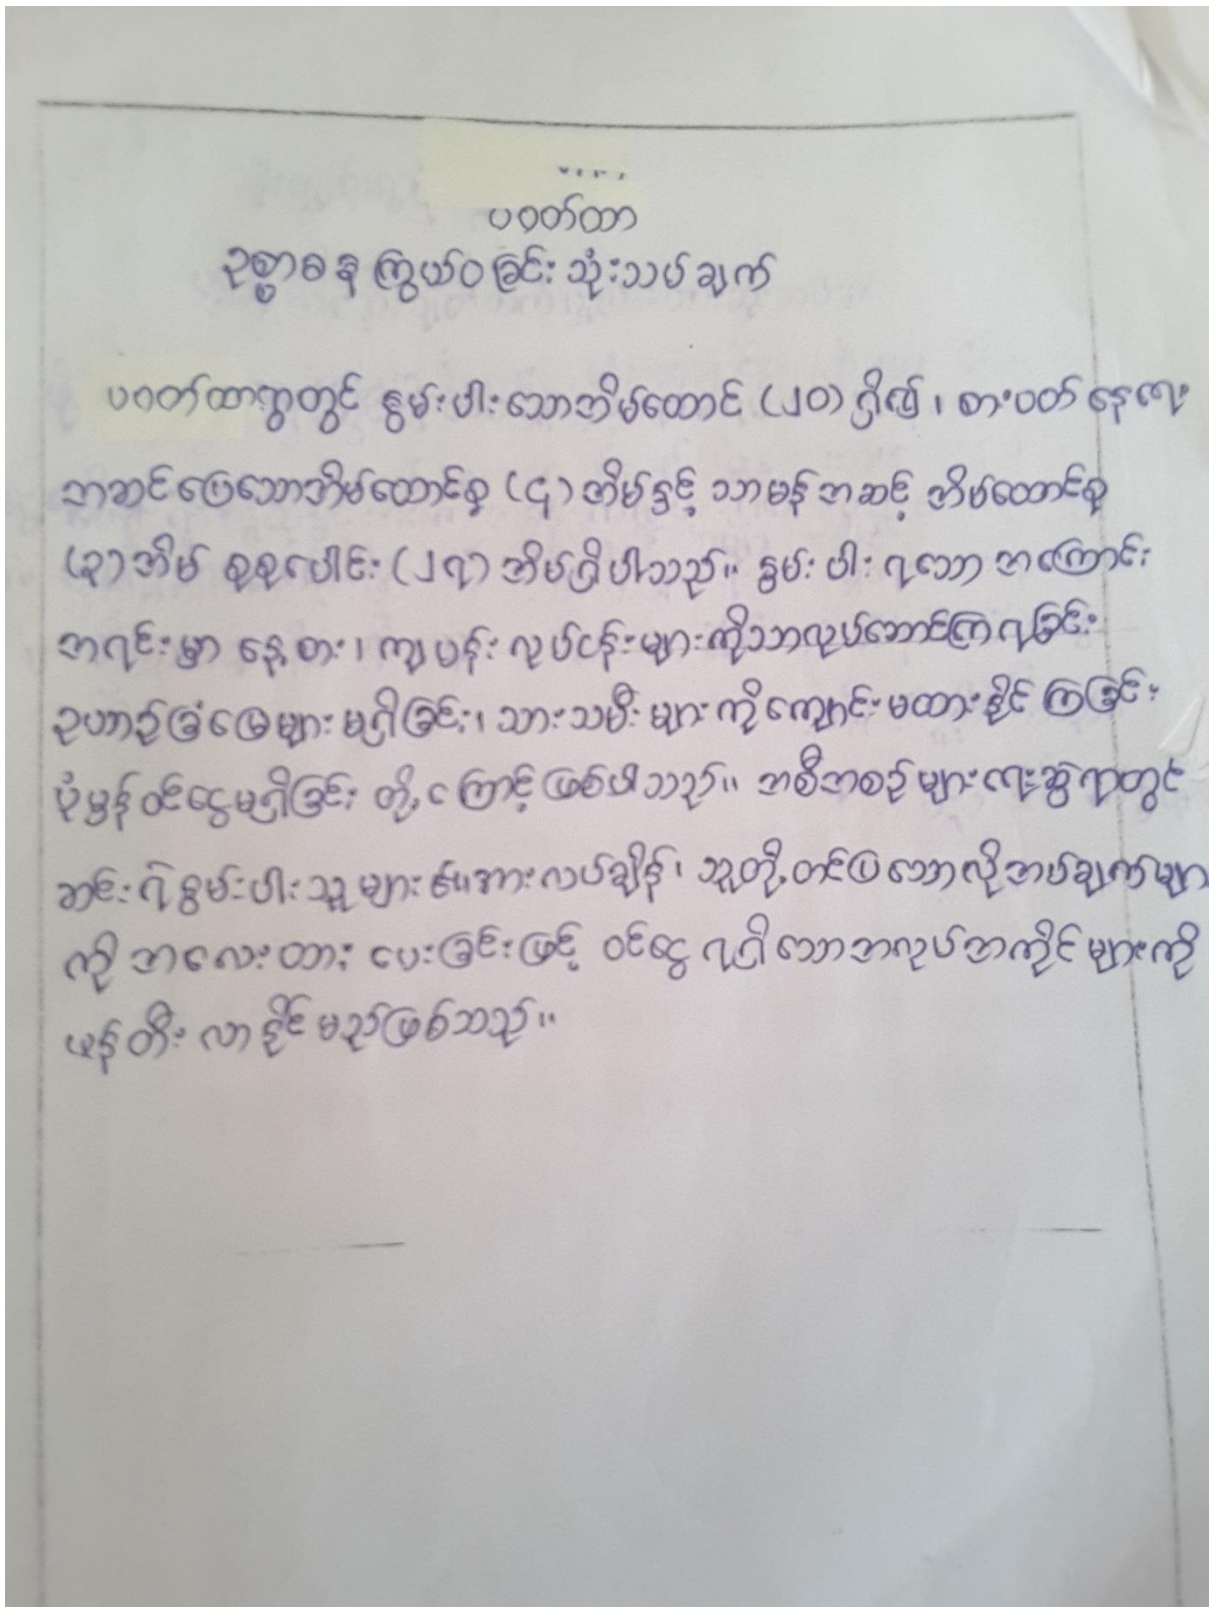 ပဝတ်ထာ
ဥစ္စာဓန ကြွယ်ဝခြင်း သုံးသပ်ချက်
ပဝတ်ထာရွာတွင် နွမ်းပါးသောအိမ်ထောင် (၂၀) ရှိ၍၊ စားဝတ်နေရေး
အဆင်ပြေသောအိမ်ထောင်စု (၄) အိမ်နှင့် သာမန်အဆင့် အိမ်ထောင်စု
(၃) အိမ် စုစုပေါင်း (၂၇) အိမ်ရှိပါသည်။ နွမ်းပါးရသော အကြောင်း
အရင်းမှာ နေ့စား၊ ကျပန်း လုပ်ငန်းများကိုသာလုပ်ဆောင်ကြရခြင်း
ဥယာဉ်ခြံမြေများ မရှိခြင်း၊ သားသမီးများကို ကျောင်းမထားနိုင်ကြခြင်း
ပုံမှန်ဝင်ငွေမရှိခြင်း တို့ကြောင့်ဖြစ်ပါသည်။ အစီအစဉ်များရေးဆွဲရာတွင်
ဆင်းရဲနွမ်းပါးသူများ၏အားလပ်ချိန်၊ သူတို့တင်ပြသောလိုအပ်ချက်များ
ကို အလေးထား ပေးခြင်းဖြင့် ဝင်ငွေရရှိသောအလုပ်အကိုင်များကို
ဖန်တီးလာနိုင်မည်ဖြစ်သည်။